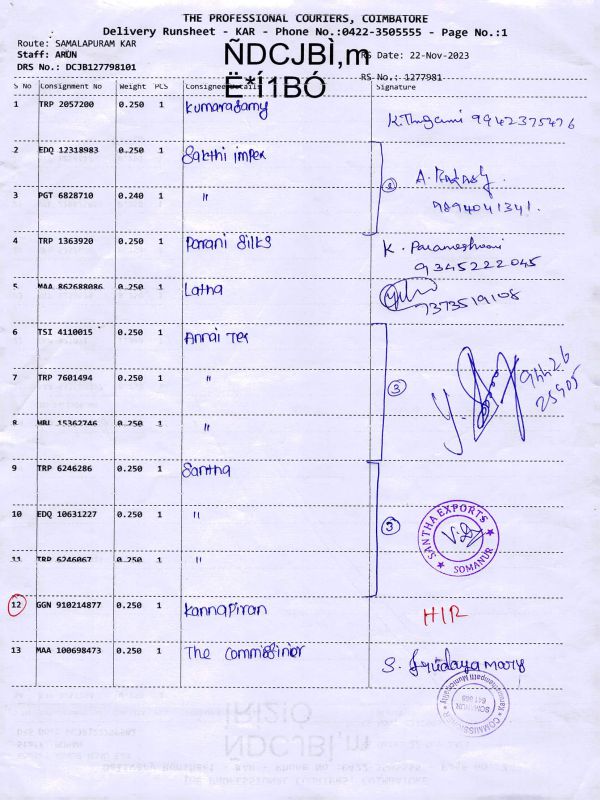 THE PROFESSIONAL COURIERS, COIMBATORE
Delivery Runsheet - KAR - Phone No.:0422-3505555 - Page No.:1
Route: SAMALAPURAM KAR
Staff: ARUN
DRS No.: DCJB127798101
ÑDCJBÌ,m
Ë*Í1BÓ
RS Date: 22-Nov-2023
RS No.: 1277981
S No Consignment No Weight PCS Consignee Details Signature
1 TRP 2057200 0.250 1 Kumarasamy 9942375476
2 EDQ 12318983 0.250 1 Sakthi impex
3 PGT 6828710 0.240 1 "
9894041341.
4 TRP 1363920 0.250 1 Parani Silks K. Parameshwari
9345222045
5 MAA 862688086 0.250 1 Latha
7373519108
6 TSI 4110015 0.250 1 Annai Tex
7 TRP 7601494 0.250 1 " 3
8 MBL 15362746 0.250 1 "
9 TRP 6246286 0.250 1 Santha
10 EDQ 10631227 0.250 1 "
SANTHA EXPORTS
SOMANUR
11 TRP 6246067 0.250 1 "
12 GGN 910214877 0.250 1 Kannapiran H/R
13 MAA 100698473 0.250 1 The Commissinior
COMMISSIONER
SOMANUR